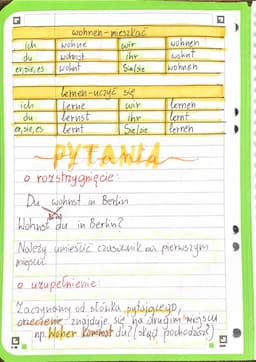 wohnen - mieszkać
ich wohne wir wohnen
du wohnst ihr wohnt
er,sie,es wohnt Sie/sie wohnen
lernen - uczyć się
ich lerne wir lernen
du lernst ihr lernt
er,sie,es lernt Sie/sie lernen
PYTANIA
o rozstrzygnięcie:
Du wohnst in Berlin
Wohnst du in Berlin?
Należy umieścić czasownik na pierwszym
miejscu
o uzupełnienie:
Zaczynamy od słówka pytającego,
orzeczenie znajduje się na drugim miejscu
np. Woher kommst du? (skąd pochodzisz?)